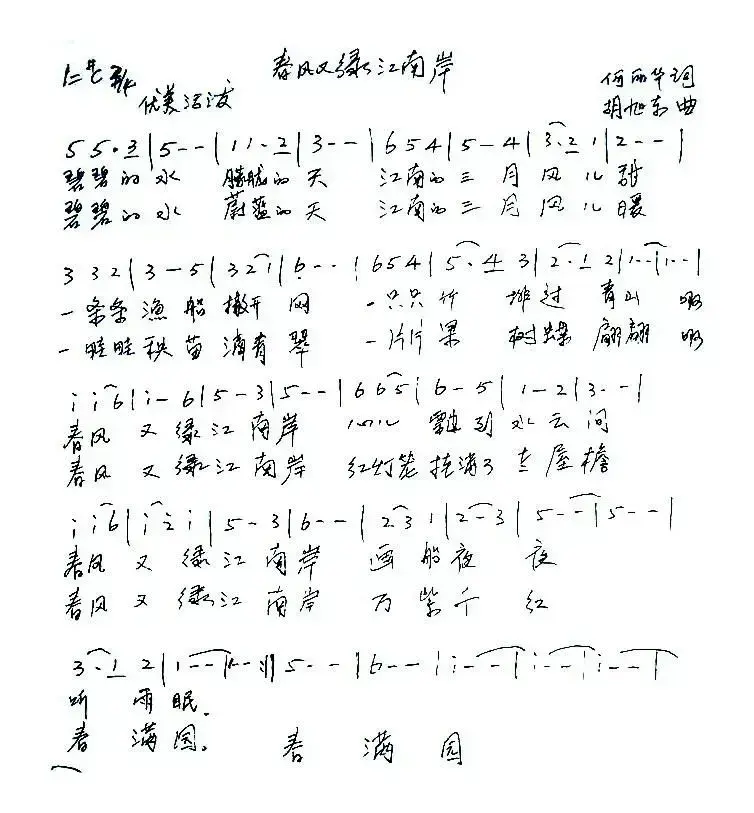 春风又绿江南岸
1=♯C 3/4
优美活泼
何丽华词
胡旭东曲
5 5. 3 | 5 - - | 1 1. 2 | 3 - - | 6 5 4 | 5 - 4 | 3. 2 1 | 2 - - |
碧碧的水 朦胧的天 江南的三月风儿甜
碧碧的水 蔚蓝的天 江南的三月风儿暖
3 3 2 | 3 - 5 | 3 2 1 | 6 - - | 6 5 4 | 5. 4 3 | 2. 1 2 | 1 - - | 1 - - |
一条条渔船撒开网 一只只竹排过青山
一畦畦秧苗滴青翠 一片片果树蝶翩翩
i i 6 | i - 6 | 5 - 3 | 5 - - | 6 6 5 | 6 - 5 | 1 - 2 | 3 - - |
春风又绿江南岸 飘到水云间
春风又绿江南岸 红灯笼挂满了 屋檐
i i 6 | i 2 i | 5 - 3 | 6 - - | 2 3 1 | 2 - 3 | 5 - - | 5 - - |
春风又绿江南岸 画船夜夜
春风又绿江南岸 万紫千红
3. 1 2 | 1 - - | 1 - - :|| 5 - - | 6 - - | i - - | i - - | i - - |
听雨眠.
春满园. 春满园